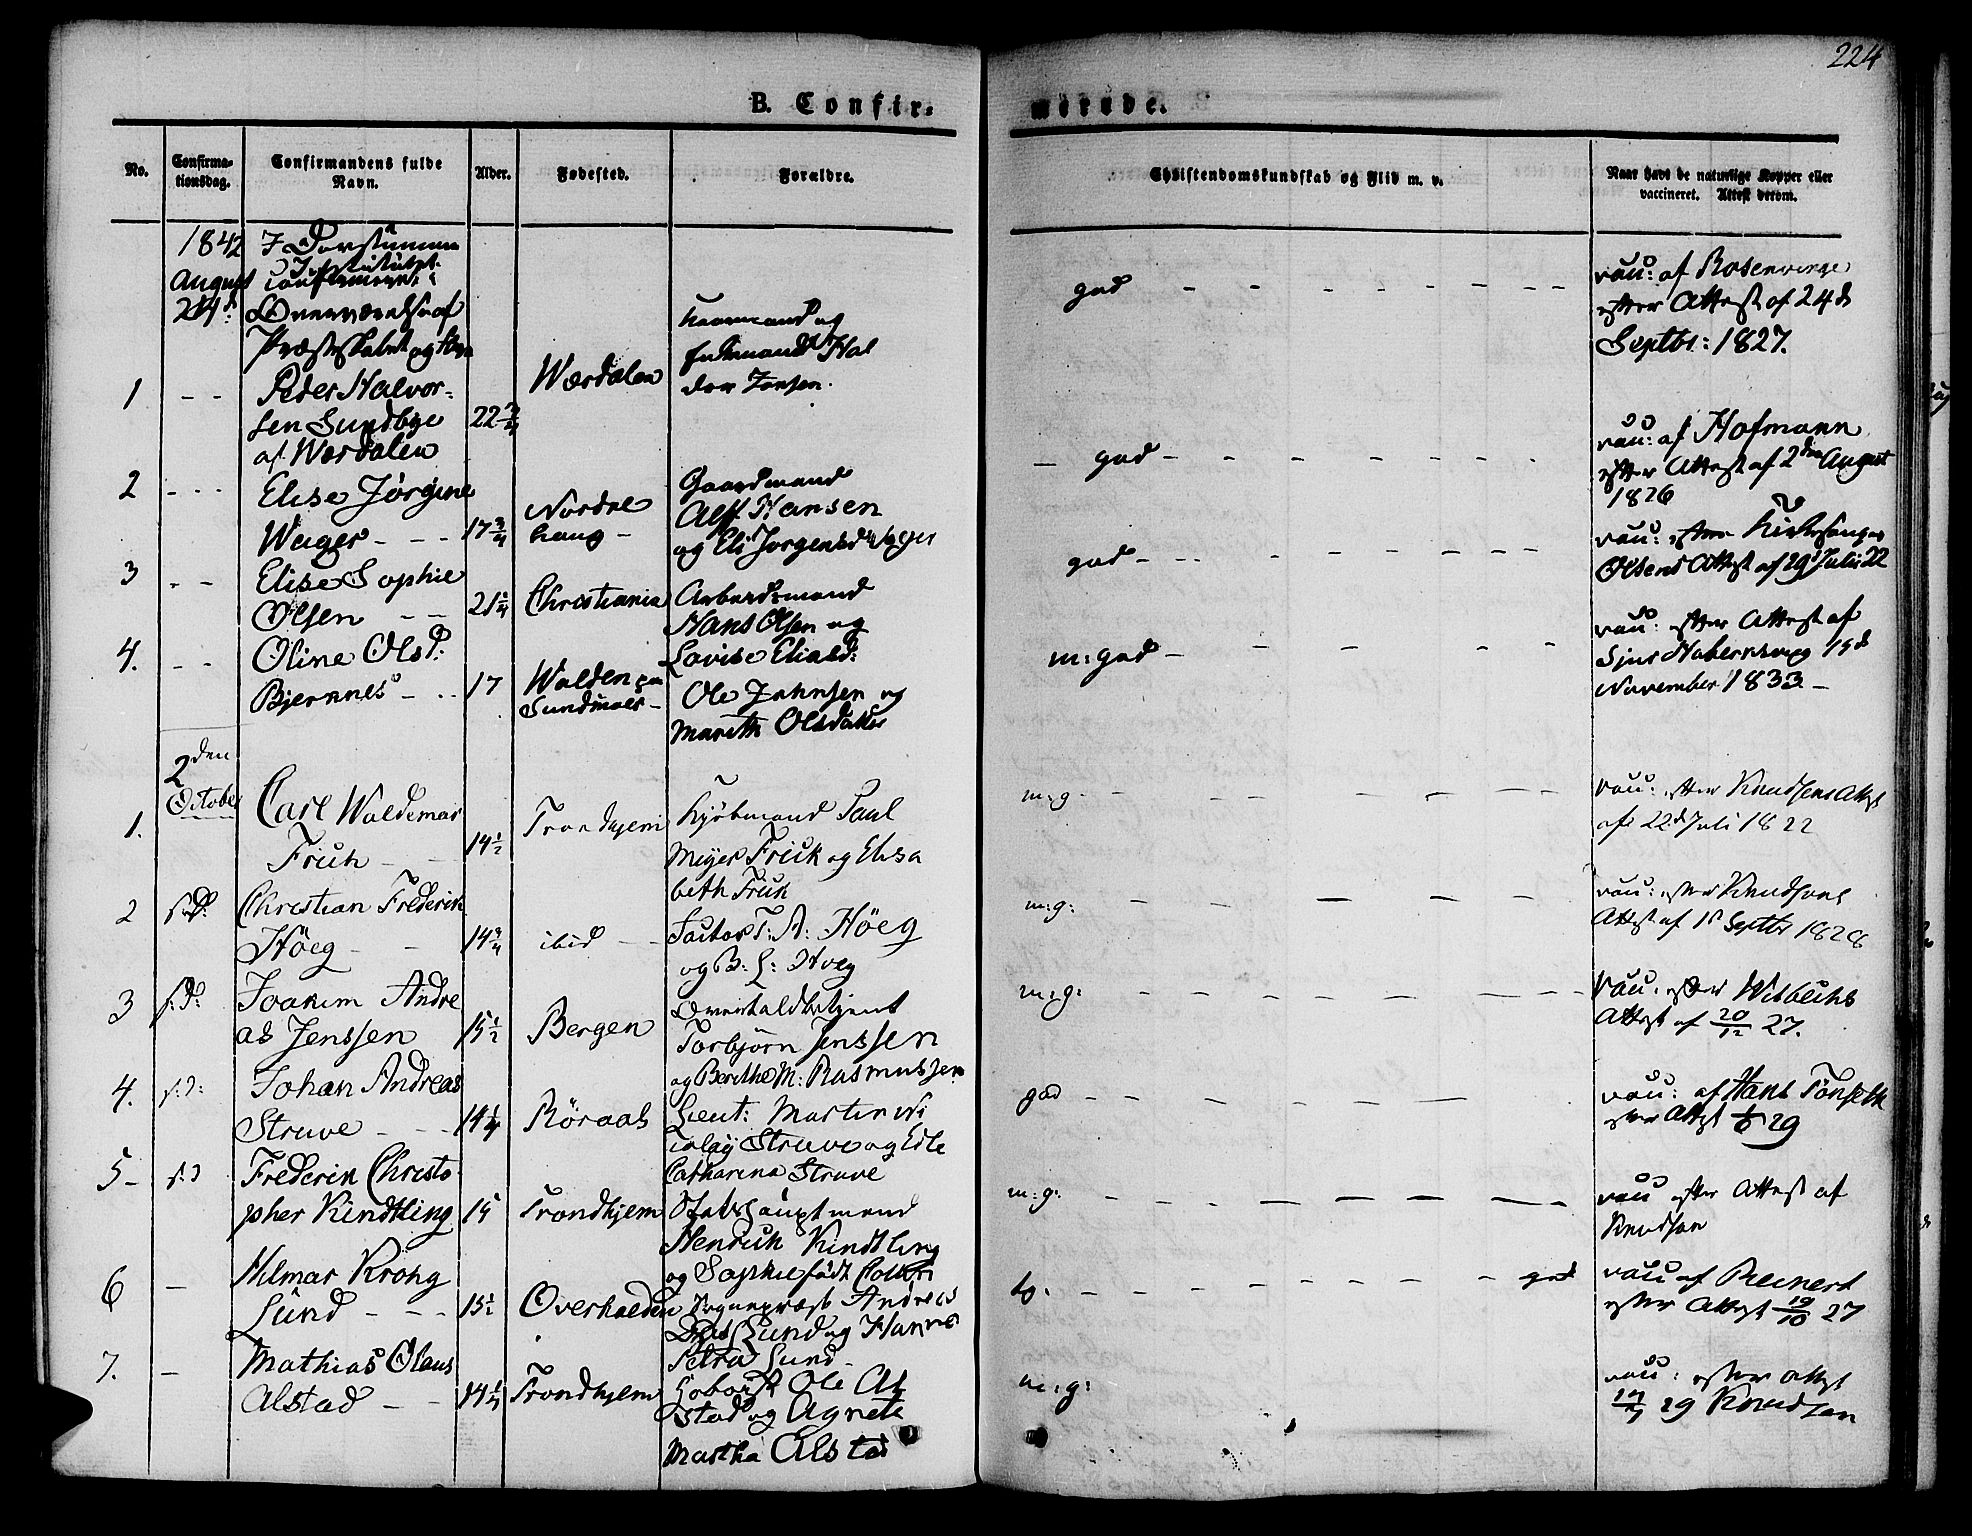 224
B. Confir-
merede.
No.
Confirma-
tionsdag.
Confirmandens fulde
Navn.
Alder.
Fødested.
Forældre.
Christendomskundskab og Flid m. v.
Naar havt de naturlige Kopper eller
vaccineret. Attest derom.
1842
August
24d:
I Døvstumme
Institutet
confirmeret i
Overværelse af
1
Peder Halvor-
sen Sundbye
af Wærdalen
22
Wærdalen
Huusmand og
dor Jonsen.
god
vac: af Rosenvinge
efter Attest af 24d
Septbr: 1827.
2
Elise Jørgine
Wager
17 3/4
Nordre
houg
Gaardmand
Alf Hansen
og Eli Jørgensd Wager
god
vac: af Hofmann
efter Attest af 2den August
1826
3
Elise Sophie
Olsen
21 1/4
Christiania
Arbeidsmand
Hans Olsen og
Lovise Eliasd:
god
vac: efter Kirkesanger
Olsens Attest af 29 Juli 22
4.
Oline Olsd:
Bjernnes
17
Volden paa
Sundmøer
Ole Johnsen og
Marith Olsdatter
m: god
vac: efter Attest af
November 1833
2den
October
1.
Carl Waldemar
Frich
14 1/2
Trondhjem
Kjøbmand Paul
Meyer Frich og Elisa
beth Frich
m: g.
vac: efter Knudsens Attest
af 22d Juli 1822
2
s: d:
Christian Frederik
Höeg
14 3/4
ibid
Factor T: A: Höeg
og B: S: Höeg
m: g:
vac: efter Knudsens
Attest af 15 Septbr 1828
3
s: d:
Joakim Andre
as Jenssen
15 1/2
Bergen
Overtoldbetjent
Torbjörn Jenssen
og Berithe M: Rasmussen
m: g:
vac: efter Wisbechs
Attest af 20/12 27.
4.
s: d:
Johan Andreas
Struve
14 1/4
Röraas
Lieut: Martin
Struve og Edle
Catharina Struve
god
vac: af Hans Tönseth
efter Attest 29
5
s: d
Frederik Christo
pher Kindtling
15
Trondhjem
Stabshauptmand
Henrich Kindtling
og Sophie födt Collin
m: g:
vac efter Attest af
Knudsen
6
Hilmar Krohg
Lund
15 1/2
Overhalden
Sognepræst Andreas
Lund og Hanne
Petra Lund
tg.
god
vac af Reinert
efter Attest 19/10 27
7.
Mathias Olaus
Alstad
14 1/4
Trondhjem
Ole Al
stad og Agnete
Martha Alstad
m: g:
vac: efter Attest
29 Knudsen